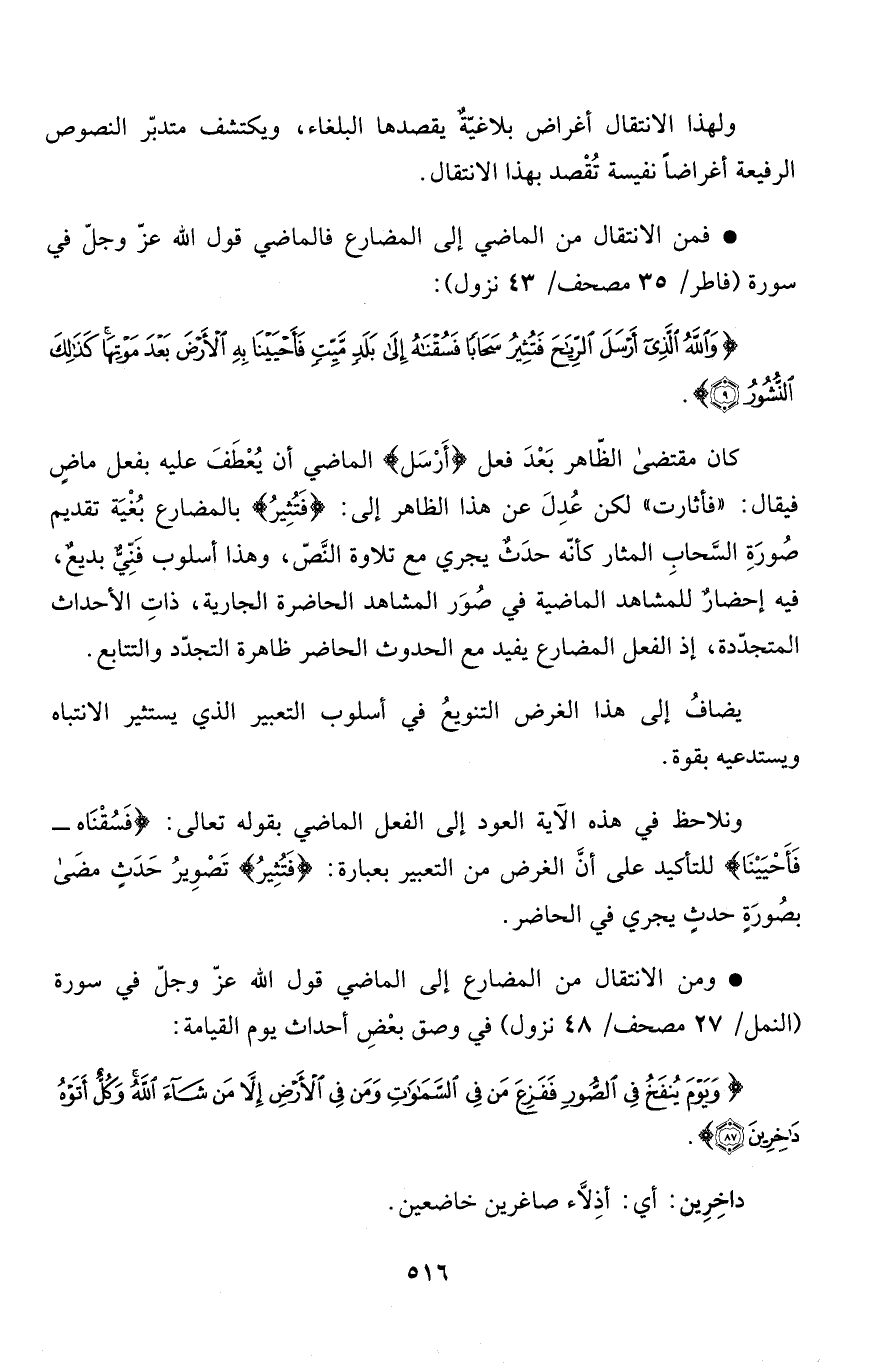 ولهذا الانتقال أغراض بلاغيّةٌ يقصدها البلغاء، ويكتشف متدبّر النصوص
الرفيعة أغراضاً نفيسة تُقْصد بهذا الانتقال.
● فمن الانتقال من الماضي إلى المضارع فالماضي قول الله عزّ وجلّ في
سورة (فاطر/ ٣٥ مصحف/ ٤٣ نزول):
﴿ وَٱللَّهُ ٱلَّذِىٓ أَرْسَلَ ٱلرِّيَٰحَ فَتُثِيرُ سَحَابًا فَسُقْنَٰهُ إِلَىٰ بَلَدٍ مَّيِّتٍ فَأَحْيَيْنَا بِهِ ٱلْأَرْضَ بَعْدَ مَوْتِهَا ۚ كَذَٰلِكَ
ٱلنُّشُورُ ٩ ﴾.
كان مقتضىٰ الظّاهر بَعْدَ فعل ﴿أَرْسَل﴾ الماضي أن يُعْطَفَ عليه بفعل ماضٍ
فيقال: «فأثارت» لكن عُدِلَ عن هذا الظاهر إلى: ﴿فَتُثِيرُ﴾ بالمضارع بُغْيَة تقديم
صُورَةِ السَّحابِ المثار كأنّه حدَثٌ يجري مع تلاوة النَّصّ، وهذا أسلوب فَنِّيٌّ بديعٌ،
فيه إحضارٌ للمشاهد الماضية في صُوَر المشاهد الحاضرة الجارية، ذاتِ الأحداث
المتجدّدة، إذ الفعل المضارع يفيد مع الحدوث الحاضر ظاهرة التجدّد والتتابع.
يضافُ إلى هذا الغرض التنويعُ في أسلوب التعبير الذي يستثير الانتباه
ويستدعيه بقوة.
ونلاحظ في هذه الآية العود إلى الفعل الماضي بقوله تعالى: ﴿فَسُقْنَاه ــ
فَأَحْيَيْنَا﴾ للتأكيد على أنَّ الغرض من التعبير بعبارة: ﴿فَتُثِيرُ﴾ تَصْوِيرُ حَدَثٍ مضَىٰ
بصُورَةٍ حدثٍ يجري في الحاضر.
● ومن الانتقال من المضارع إلى الماضي قول الله عزّ وجلّ في سورة
(النمل/ ٢٧ مصحف/ ٤٨ نزول) في وصق بعْضِ أحداث يوم القيامة:
﴿ وَيَوْمَ يُنفَخُ فِى ٱلصُّورِ فَفَزِعَ مَن فِى ٱلسَّمَٰوَٰتِ وَمَن فِى ٱلْأَرْضِ إِلَّا مَن شَآءَ ٱللَّهُ ۚ وَكُلٌّ أَتَوْهُ
دَٰخِرِينَ ٨٧ ﴾.
داخِرِين: أي: أذِلَّاء صاغرين خاضعين.
٥١٦